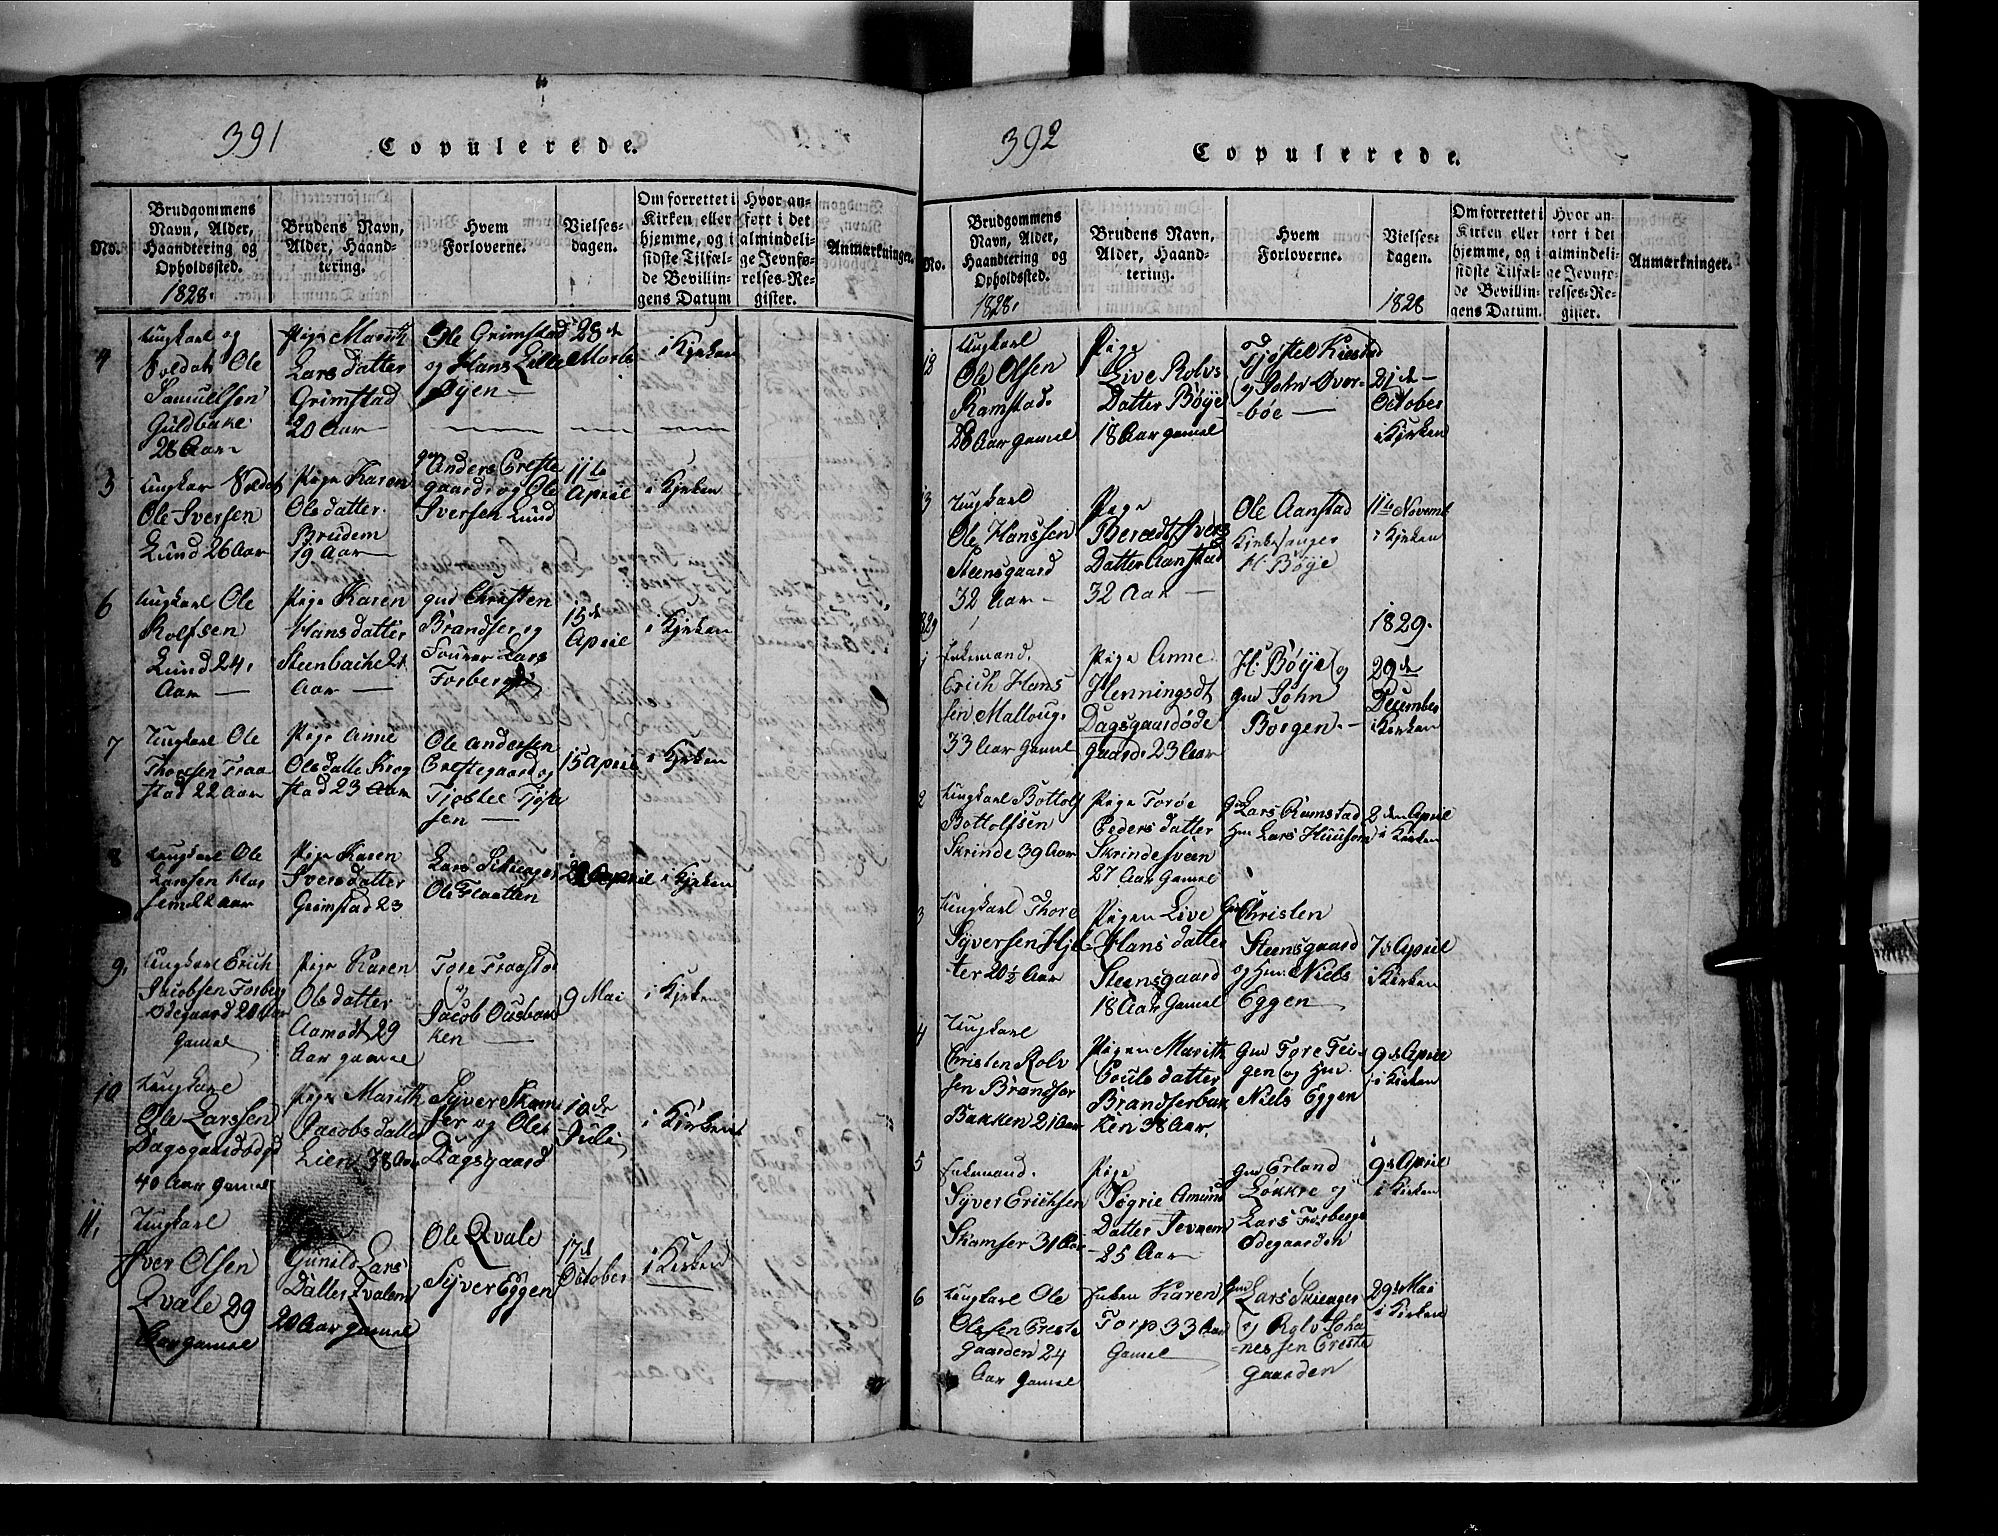 391
Copulerede.
No.
Brudgommens
Navn, Alder,
Haandtering og
Opholdssted.
1828.
Brudens Navn,
Alder, Haand-
tering.
Hvem
Forloverne.
Vielses-
dagen.
Om forrettet i
Kirken eller
hjemme, og i
sidste Tilfæl-
de Bevillin-
gens Datum
Hvor an-
ført i det
almindeli-
ge Jevnfø-
relses-Re-
gister.
Anmærkninger.
4
Ungkarl og
Soldat Ole
Samuelsen
Guldbake
28 Aar
Pige Marith
Lars datter
Grimstad
20 Aar
Ole Grimstad
og Hans Lille
Øÿen
28de
Marts
i Kirken
3
Ungkar Soldat
Ole Iversen
Lund 26 Aar
Pige Karen
Olsdatter
Brudem
19 Aar
Anders Ereste
gaard og Ole
Iversen Lund
11te
April
i Kirken
6
Ungkarl Ole
Rolfsen
Lund 24
Aar
Pige Karen
Hansdatter
Steenbacke 21
Aar
Christen
Brandser og
Lars
Forberg
15de
April
i Kirken
7
Ungkarl Ole
Thoresen Fraa
stad 22 Aar
Pige Anne
Olsdatte Krog
stad 23 Aar
Ole Andersen
Erestegaard og
sen
15 April
i Kirken
8
Ungkarl Ole
Larssen
Pige Karen
Iversdatter
Grimstad 23
Lars Skieager
Ole Flaatten
April
i Kirken
9.
Ungkarl Erich
Jacobsen Forberg
ødegaard 20 Aar
Gamel
Pige Karen
Olsdatter
Aamodt 29
Aar gamel
Tore
og
Jacob Ousbak
ken
9 Mai
i Kirken
10
Ungkarl
Ole Larssen
Dagsgaardødegd
40 Aar gamel
Pige Marith
Jacobsdatter
Lien 38 Aar
Syver Skam
ser og Ole
Dagsgaard
10de
Juli
i Kirken
11.
Ungkarl
Iver Olsen
Qvale 29
Aar gamel
Gunild Lars
Datter Qvalem
20 Aar gamel
Ole Qvale
Syver Eggen
17de
October
i Kirken
392
Copulerede.
No.
Brudgommens
Navn, Alder,
Haandtering og
Opholdssted.
1828.
Brudens Navn,
Alder, Haand-
tering.
Hvem
Forloverne.
Vielses-
dagen.
1828
Om forrettet i
Kirken eller
hjemme, og i
sidste Tilfæl-
de Bevillin-
gens Datum.
Hvor an-
ført i det
almindeli-
ge Jevnfø-
relses-Re-
gister.
Anmærkninger.
12
Ungkarl
Ole Olsen
Ramstad.
28 Aar gamel
Pige
Live Rolvs
Datter Bøÿe
18 Aar gamel
Tjøstel Kiestad
og John Över-
-böe
21de
October
i Kirken
13
Ungkarl
Ole Hanssen
Steensgaard
32 Aar
Pige
Beredt Ivers
Datter Aanstad
32 Aar
Ole Aanstad
Kirkesanger
H. Bøÿe
11te Novemb
i Kirken
1829
1829.
1
Enkemand.
Erich Hans
sen Malloug.
33 Aar Gamel
Pige Anne
Henningsdt
Dagsgaardøde
gaard. 23 Aar
H. Bøÿe og
Gm John
Borgen.
29de
December
i Kirken
2
Ungkarl Bottolf
Bottolfsen
Skrinde 39 Aar
Pige Torøe
Peders datter
Skrindesveen
27 Aar Gamel
Lars Ramstad
Hm Lars Huusom
2den April
i Kirken
3
Ungkarl Thore
Syversen Hjel-
ter 20½ Aar
Pigen Live
Hans datter
Steensgaard
18 Aar Gamel
Christen
Steensgaard
og Hm Niels
Eggen
7de April
i Kirken
4
Ungkarl
Christen Rolv
sen Brandser
Bakken 21 Aar
Pigen Marith
Pouls datter
Brandserbak
ken 38 Aar.
Gm Tore Tei
gen og Hm
Niels Eggen
9de April
i Kirken
5
Enkemand.
Syver Erichsen
Skamser 31 Aar
Pige
Søgrie Amund
Datter Jevnem
25 Aar
Gm Erland
Løkkre og
Lars Forbergs
ødegaarden
9de April
i Kirken
6
Ungkarl Ole
Olssen Ereste
gaarden 24
Aar gamel
Enken Karen
Torp 33 Aar
Gamel
Lars Skieager
og Rolv Joha
-nessen Ereste
gaarden
29de Mai
i Kirken